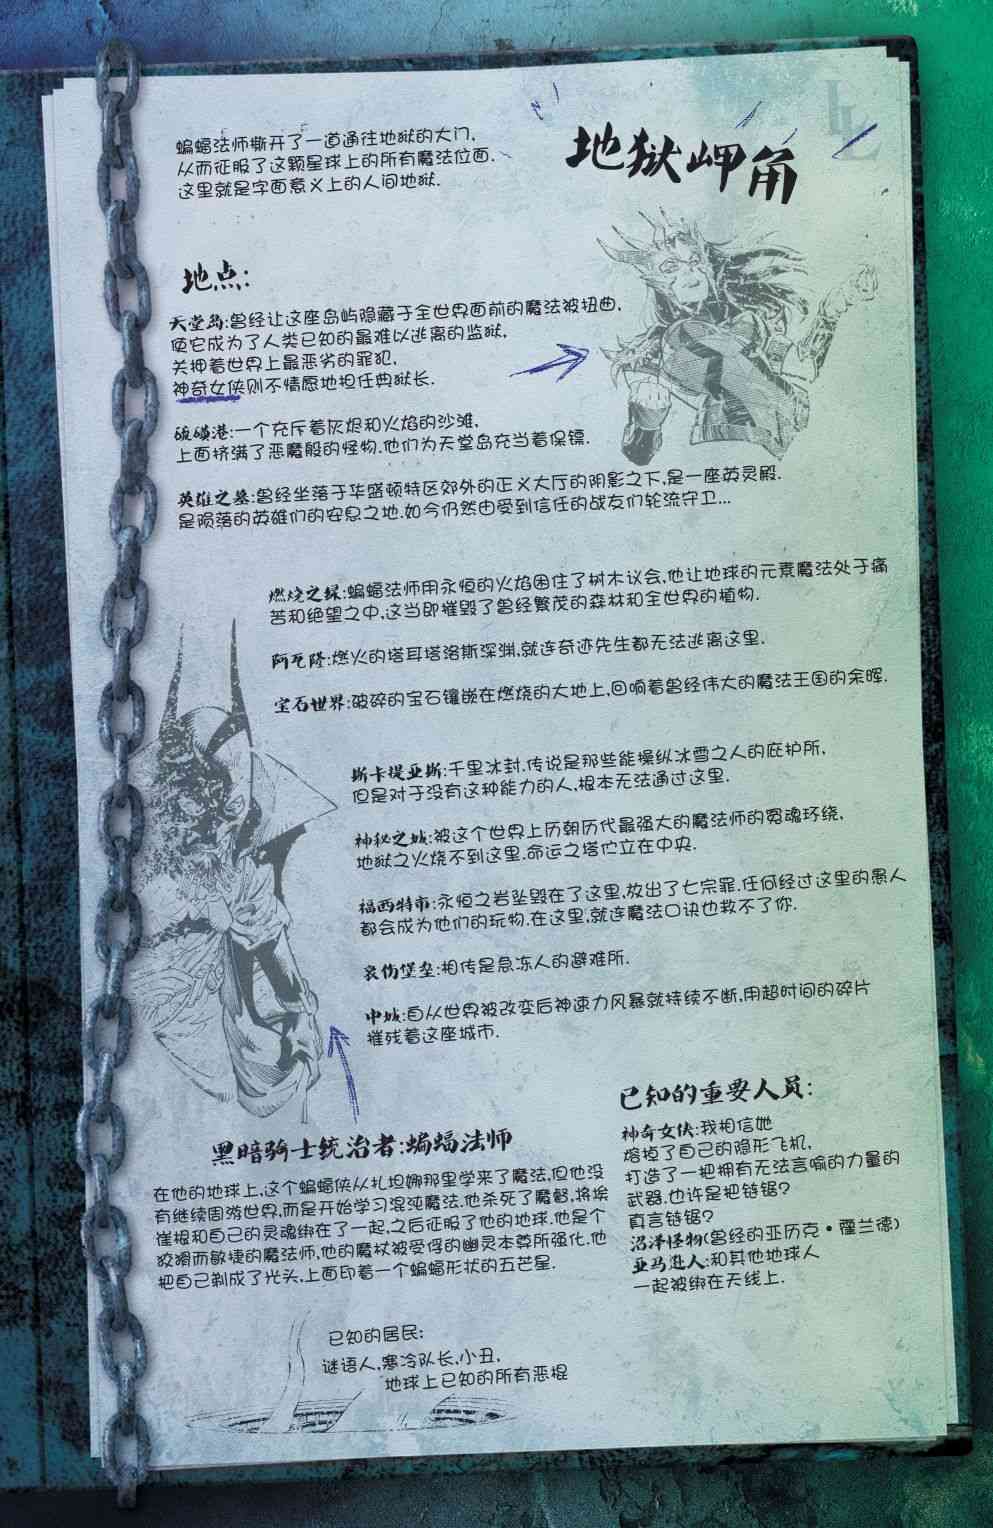 地狱岬角
蝙蝠法师撕开了一道通往地狱的大门,
从而征服了这颗星球上的所有魔法位面.
这里就是字面意义上的人间地狱.
地点:
天堂岛:曾经让这座岛屿隐藏于全世界面前的魔法被扭曲,
使它成为了人类已知的最难以逃离的监狱,
关押着世界上最恶劣的罪犯,
神奇女侠则不情愿地担任典狱长.
硫磺港:一个充斥着灰烬和火焰的沙滩,
上面挤满了恶魔般的怪物.他们为天堂岛充当着保镖.
英雄之墓:曾经坐落于华盛顿特区郊外的正义大厅的阴影之下,是一座英灵殿.
是陨落的英雄们的安息之地.如今仍然由受到信任的战友们轮流守卫...
燃烧之绿:蝙蝠法师用永恒的火焰困住了树木议会,他让地球的元素魔法处于痛
苦和绝望之中,这当即摧毁了曾经繁茂的森林和全世界的植物.
阿瓦隆:燃火的塔耳塔洛斯深渊,就连奇迹先生都无法逃离这里.
宝石世界:破碎的宝石镶嵌在燃烧的大地上,回响着曾经伟大的魔法王国的余晖.
斯卡提亚斯:千里冰封.传说是那些能操纵冰雪之人的庇护所,
但是对于没有这种能力的人,根本无法通过这里.
神秘之城:被这个世界上历朝历代最强大的魔法师的冤魂环绕,
地狱之火烧不到这里.命运之塔伫立在中央.
福西特市:永恒之岩坠毁在了这里,放出了七宗罪.任何经过这里的愚人
都会成为他们的玩物.在这里,就连魔法口诀也救不了你.
哀伤堡垒:相传是急冻人的避难所.
中城:自从世界被改变后神速力风暴就持续不断,用超时间的碎片
摧残着这座城市.
黑暗骑士统治者:蝙蝠法师
在他的地球上,这个蝙蝠侠从扎坦娜那里学来了魔法,但他没
有继续周游世界,而是开始学习混沌魔法.他杀死了魔督,将埃
崔根和自己的灵魂绑在了一起,之后征服了他的地球.他是个
狡猾而敏捷的魔法师,他的魔杖被受俘的幽灵本尊所强化.他
把自己剃成了光头,上面印着一个蝙蝠形状的五芒星.
已知的重要人员:
神奇女侠:我相信她
熔掉了自己的隐形飞机,
打造了一把拥有无法言喻的力量的
武器.也许是把链锯?
真言链锯?
沼泽怪物(曾经的亚历克·霍兰德)
亚马逊人:和其他地球人
一起被绑在天线上.
已知的居民:
谜语人,寒冷队长,小丑,
地球上已知的所有恶棍